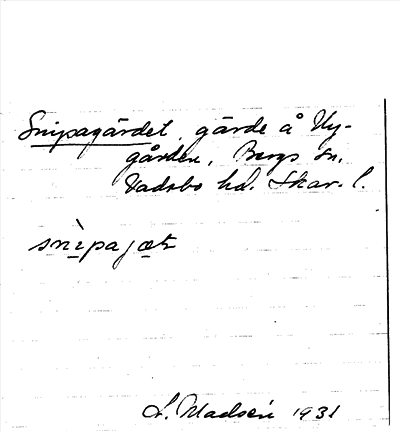 Snipagärdet, gärde å Ny-
gården, Bergs sn,
Vadsbo hd. Skar. l.
snìpajæt
L. Madsén 1931